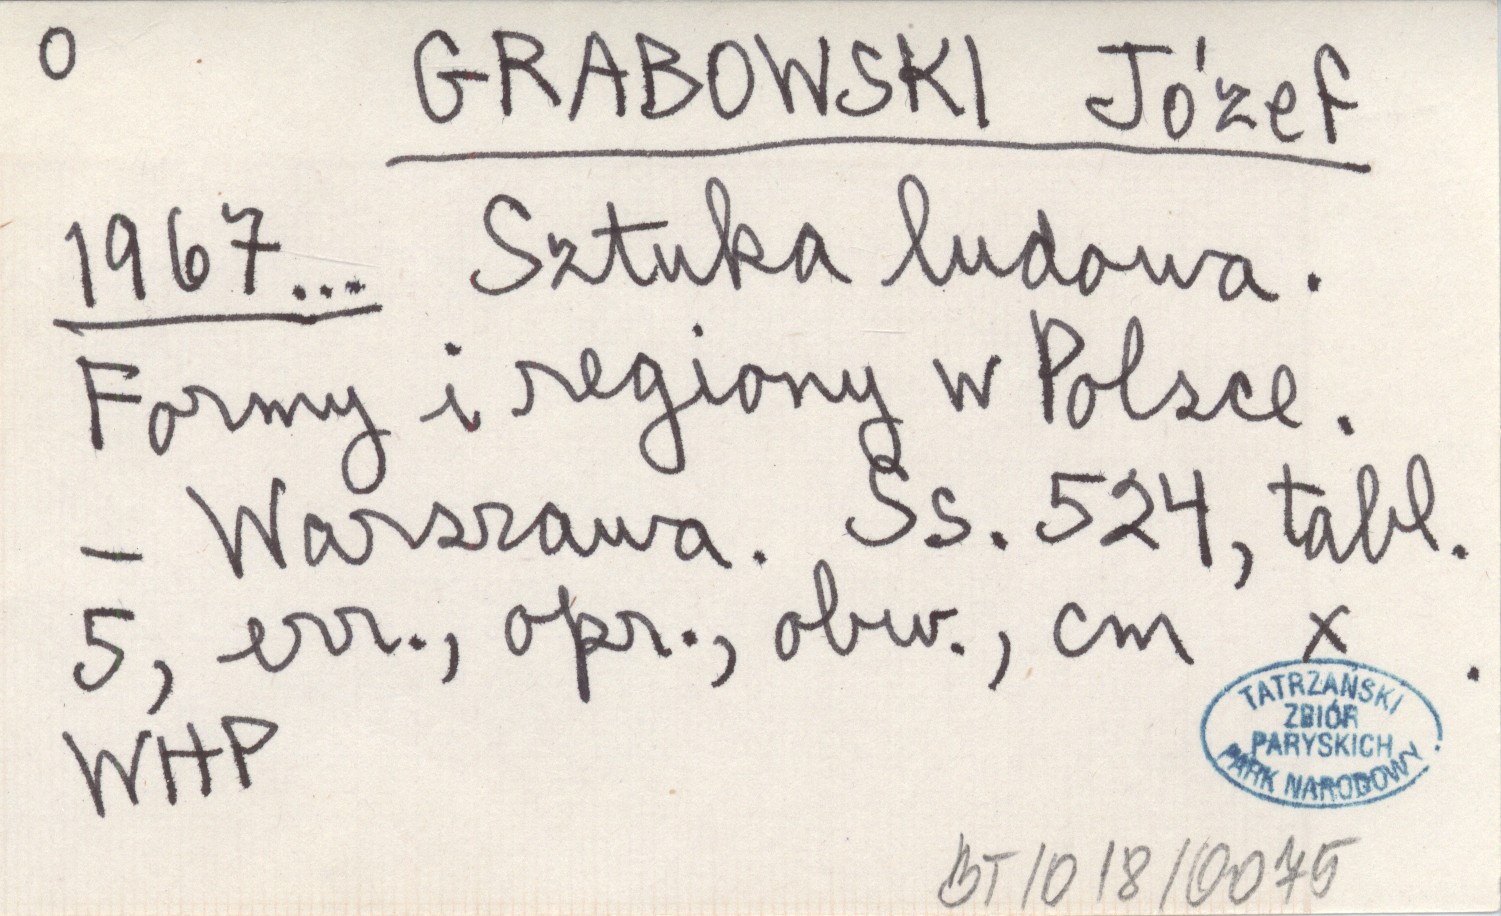 O GRABOWSKI Józef
1967... Sztuka ludowa.
Formy i regiony w Polsce.
– Warszawa. Ss. 524, tabl.
5, err., opr., obw., cm x .
WHP
TATRZAŃSKI
ZBIÓR
PARYSKICH
PARK NARODOWY
BT/018/0075